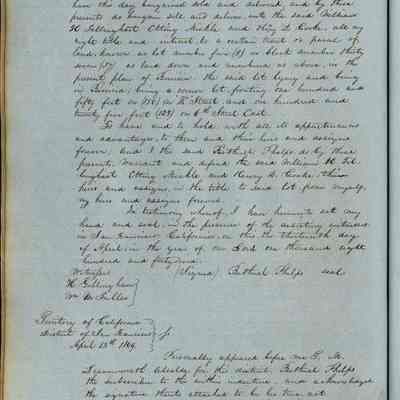 have this day bargained sold and delivered, and by these
presents do bargain sell and deliver, unto the said William
H Tillinghast Otting Mickle and Henry A. Cooke, all my
right title and interest, to a certain tract or parcel of
land, known as lot number five (5) in block number thirty
seven (37) as laid down and numbered as above, in the
present plan of Benicia. the said lot lying and being
in Benicia, being a corner lot, fronting one hundred and
fifty feet on (150) on K Street, and one hundred and
twenty five feet (125) on 6th Street East.
To have and to hold with all the appurtenances
and advantages, to them and their heirs and assigns
forever, and I the said Bethuel Phelps do by these
presents, warrant and defend the said William H Til-
linghast Otting Mickle, and Henry A. Cooke, their
heirs and assigns, in the title to said lot from myself,
my heirs and assigns forever.
In testimony whereof, I have hereunto set my
hand and seal, in the presence of the attesting witnesses
in San Francisco California, on this the thirteenth day
of April in the year of our Lord one thousand eight
hundred and forty nine.
Witnesses (Signed) Bethuel Phelps seal
W Gillingham
Wm M. Fuller
Territory of California
District of San Francisco ss
April 13th 1849.
Personally appeared before me T. M.
Leavenworth Alcalde for the district, Bethuel Phelps
the subscriber to the within indenture, and acknowledged
the signature thereto attached to be his true act